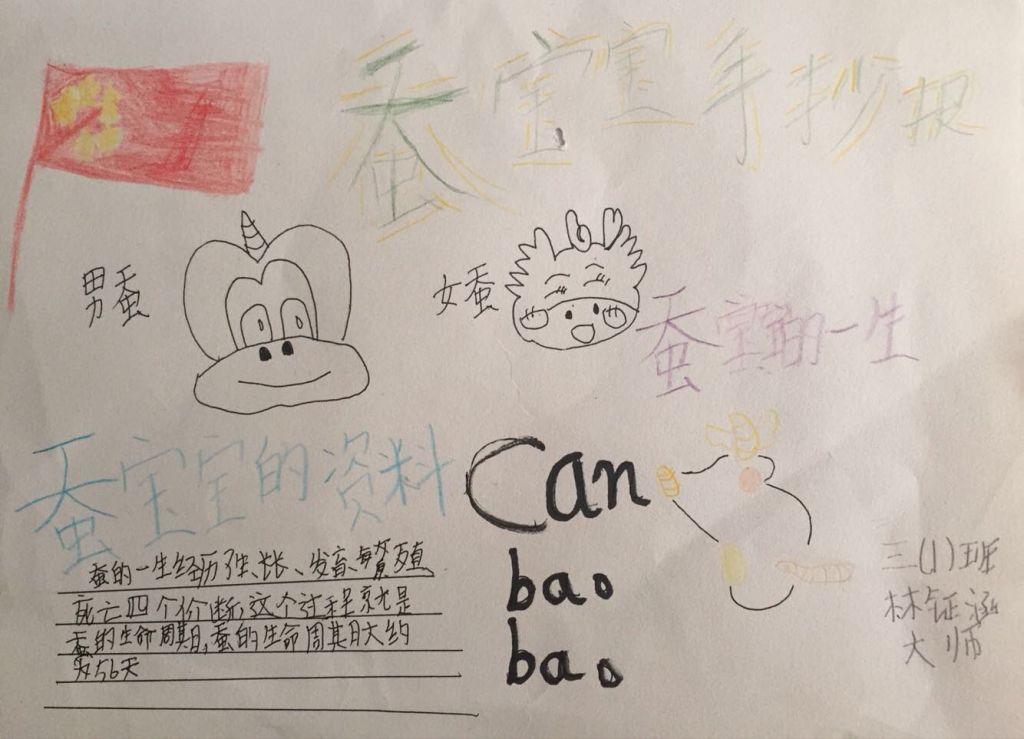 蚕宝宝手抄报
男蚕
女蚕
蚕宝宝的一生
蚕宝宝的资料
Can
bao
bao
蚕的一生经历生、长、发育、繁殖
死亡四个价断,这个过程就是
蚕的生命周期,蚕的生命周期大约
为56天
三(1)班
林钲涵
大师